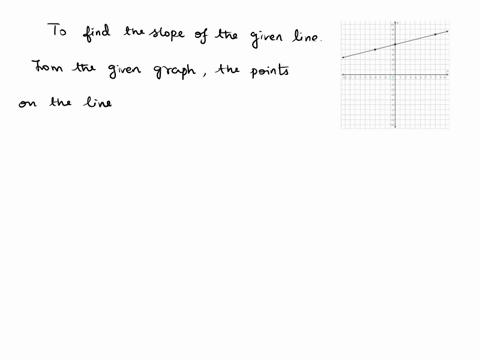 To find the slope of the given line.
From the given graph, the points
on the line